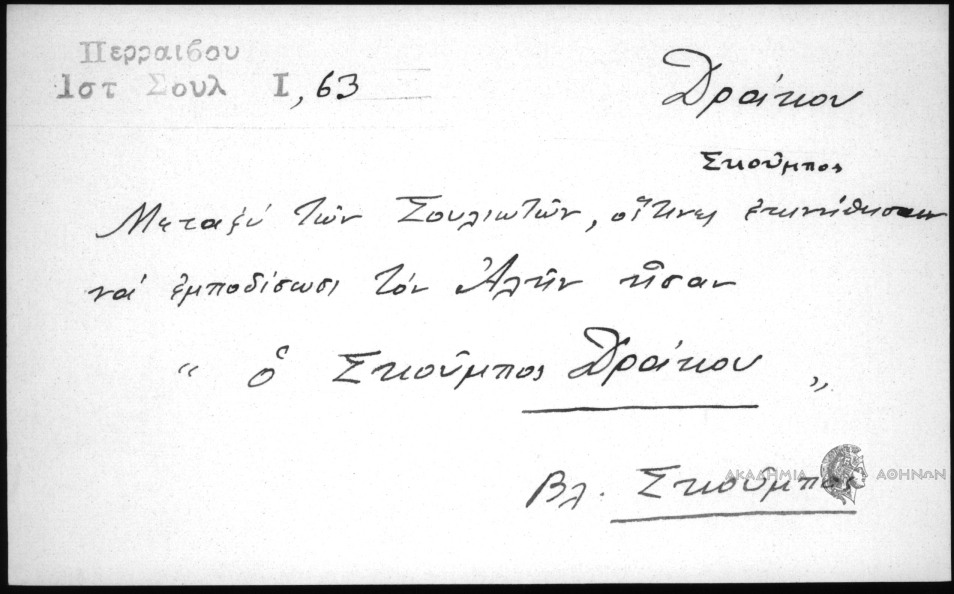 Περραιβου
Ιστ Σουλ Ι, 63
Δράκου
Σκοῦμπος
Μεταξὺ τῶν Σουλιωτῶν, οἵτινες ἐκινήθησαν
νά ἐμποδίσωσι τόν Ἀλῆν ἦσαν
“ ὁ Σκοῦμπος Δράκου „
Βλ. Σκοῦμπος
ΑΚΑΔΗΜΙΑ ΑΘΗΝΩΝ